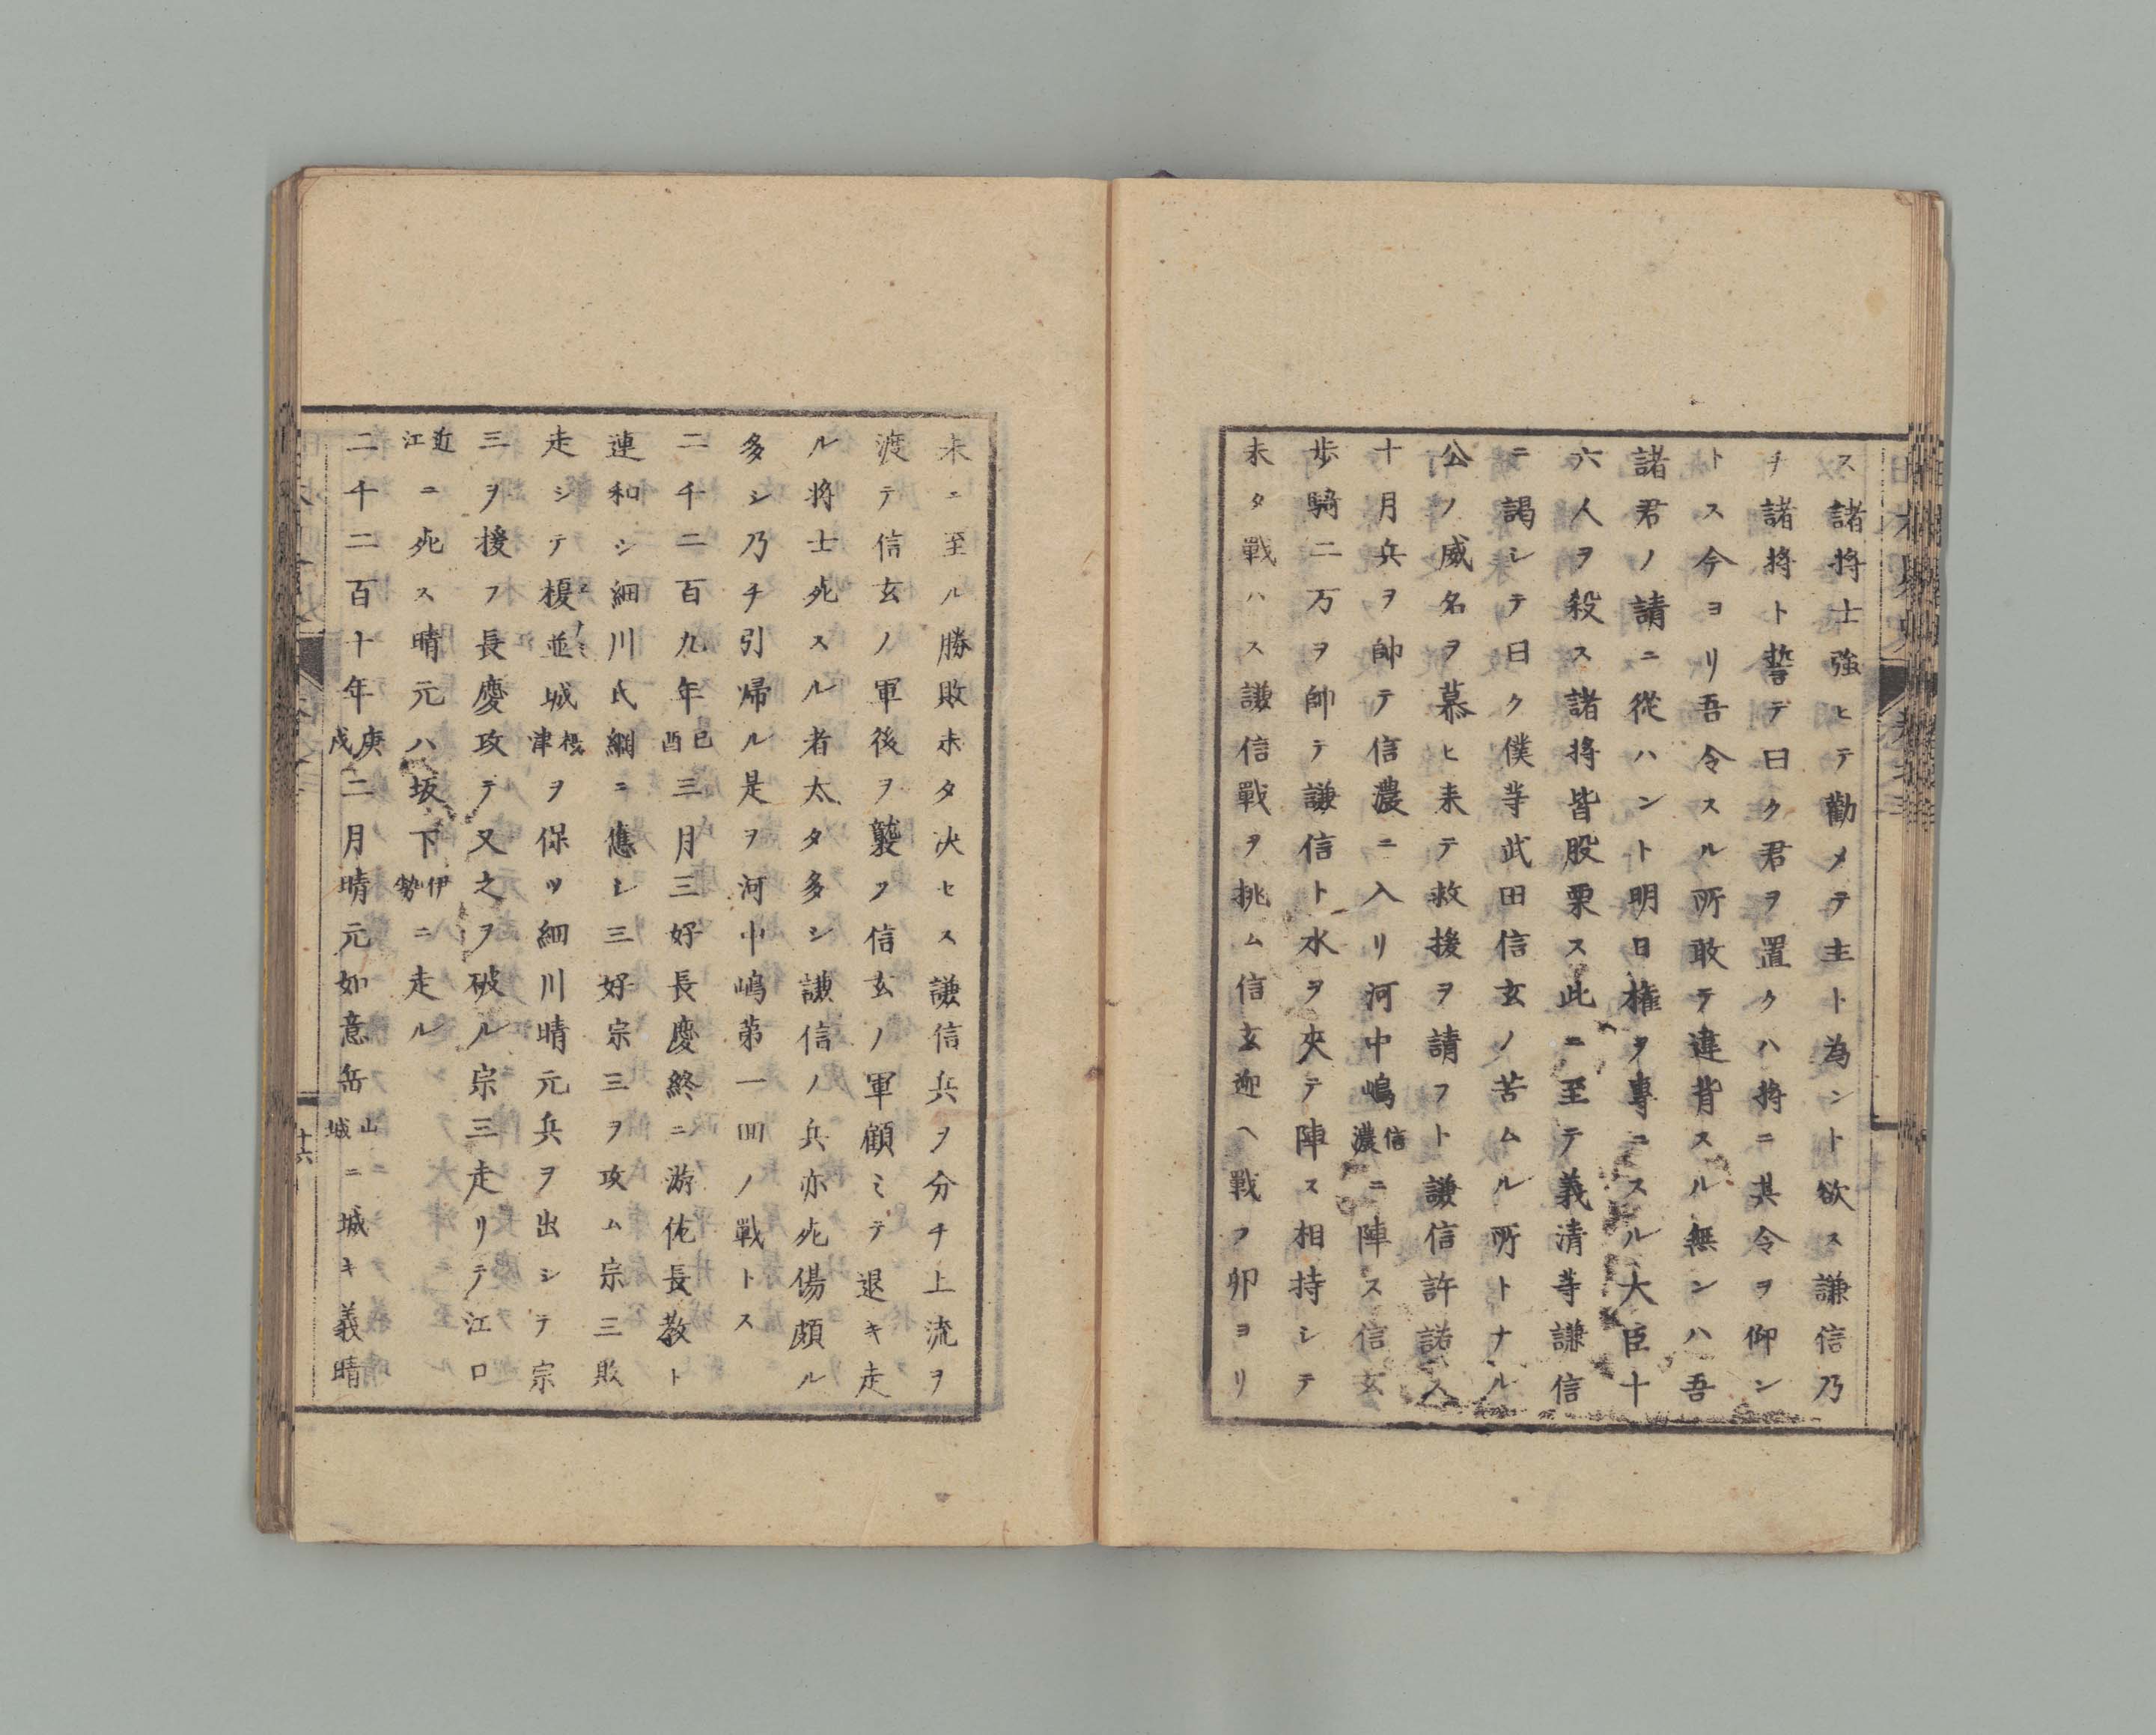 ス諸將士強ヒテ勸メテ主ト為ント欲ス謙信乃
チ諸將ト誓テ曰ク君ヲ置クハ將ニ其令ヲ仰ン
トス今ヨリ吾令スル所敢テ違背スル無ンハ吾
諸君ノ請ニ從ハント明日權ヲ專ニスル大臣十
六人ヲ殺ス諸將皆股栗ス此ニ至テ義清等謙信
ニ謁シテ曰ク僕等武田信玄ノ苦ムル所トナル
公ノ威名ヲ慕ヒ来テ救援ヲ請フト謙信許諾ス
十月兵ヲ帥テ信濃ニ入リ河中嶋信濃ニ陣ス信玄
歩騎二万ヲ帥テ謙信ト水ヲ夾テ陣ス相持シテ
未タ戰ハス謙信戰ヲ挑ム信玄迎ヘ戰フ卯ヨリ
未ニ至ル勝敗未タ决セス謙信兵ヲ分チ上流ヲ
渡テ信玄ノ軍後ヲ襲フ信玄ノ軍顧ミテ退キ走
ル將士死スル者太タ多シ謙信ノ兵亦死傷頗ル
多シ乃チ引帰ル是ヲ河中嶋第一回ノ戰トス
二千二百九年己酉三月三好長慶終ニ游佐長教ト
連和シ細川氏綱ニ應シ三好宗三ヲ攻ム宗三敗
走シテ榎並城攝津ヲ保ツ細川晴元兵ヲ出シテ宗
三ヲ援フ長慶攻テ又之ヲ破ル宗三走リテ江口
近江ニ死ス晴元ハ坂下伊勢ニ走ル
二千二百十年庚戌二月晴元如意岳山城ニ城キ義晴
十六